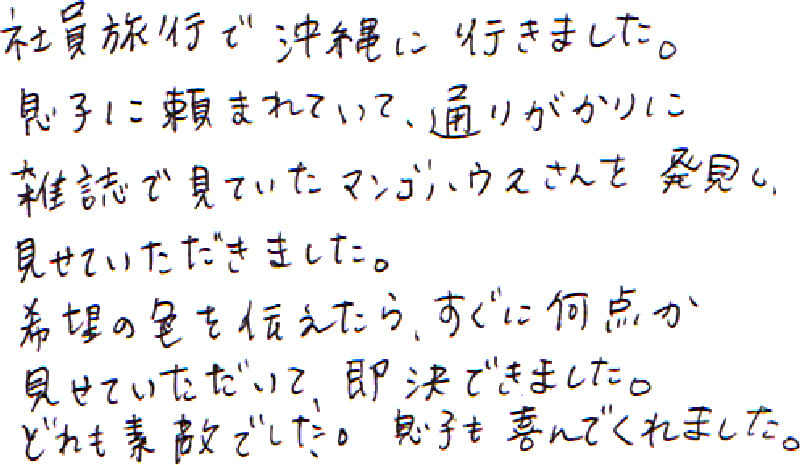 社員旅行で沖縄に行きました。
息子に頼まれていて、通りがかりに
雑誌で見ていたマンゴハウスさんを発見し、
見せていただきました。
希望の色を伝えたら、すぐに何点か
見せていただいて、即決できました。
どれも素敵でした。息子も喜んでくれました。